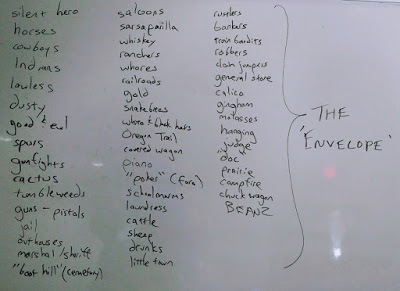 silent hero
horses
cowboys
Indians
lawless
dusty
good & evil
spurs
gunfights
cactus
tumbleweeds
guns - pistols
jail
outhouses
marshal/sheriff
"boot hill" (cemetery)
saloons
sarsaparilla
whiskey
ranchers
whores
railroads
gold
snakebites
white & black hats
Oregon Trail
covered wagon
piano
"poker" (faro)
schoolmarms
laundress
cattle
sheep
drunks
little town
rustlers
bankers
train bandits
robbers
claim jumpers
general store
calico
gingham
molasses
hanging
"judge"
"doc"
prairie
campfire
chuck wagon
BEANZ
THE
'ENVELOPE'